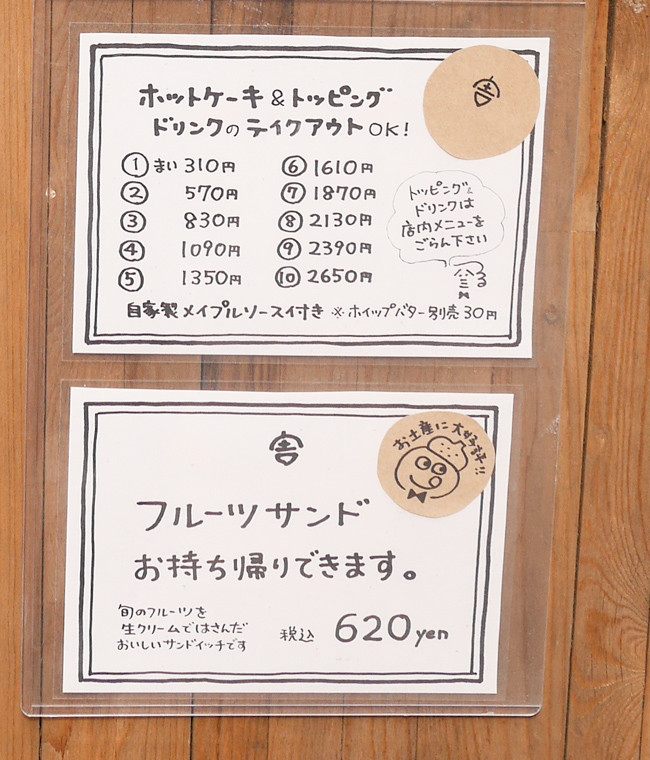 ホットケーキ&トッピング
ドリンクのテイクアウトOK!
① まい 310円
② 570円
③ 830円
④ 1090円
⑤ 1350円
⑥ 1610円
⑦ 1870円
⑧ 2130円
⑨ 2390円
⑩ 2650円
トッピング&
ドリンクは
店内メニューを
ごらん下さい
自家製メイプルソースイ付き ※ホイップバター別売30円
お土産に大好評!!
フルーツサンド
お持ち帰りできます。
旬のフルーツを
生クリームではさんだ
おいしいサンドイッチです
税込 620yen